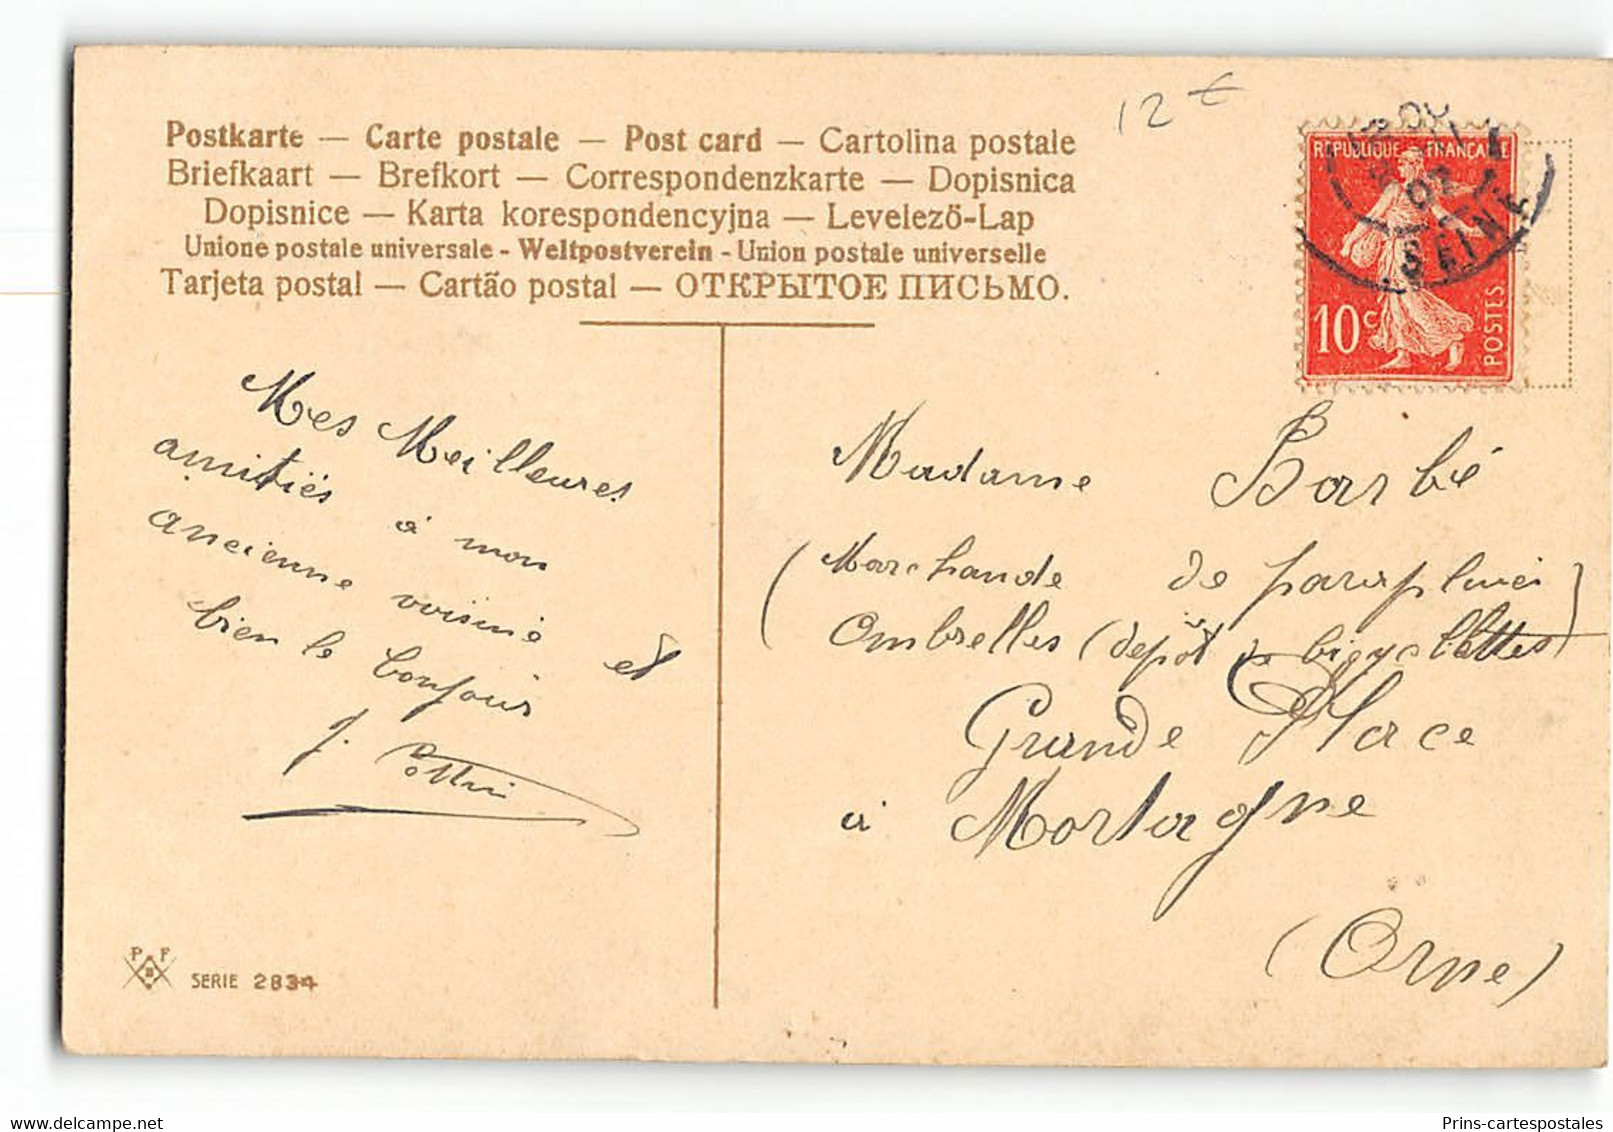 12 €
Postkarte — Carte postale — Post card — Cartolina postale
Briefkaart — Brefkort — Correspondenzkarte — Dopisnica
Dopisnice — Karta korespondencyjna — Levelező-Lap
Unione postale universale - Weltpostverein - Union postale universelle
Tarjeta postal — Cartão postal — ОТКРЫТОЕ ПИСЬМО.
REPUBLIQUE FRANCAISE
10 c
POSTES
SEINE
Mes Meilleures
amitiés à mon
ancienne voisine et
bien le bonjour
J.
Madame Barbé
(Marchande de parapluies
Ombrelles (depôt de bicyclettes)
Grande Place
à Mortagne
(Orne)
P F
B
SERIE 2834
Prins-cartespostales